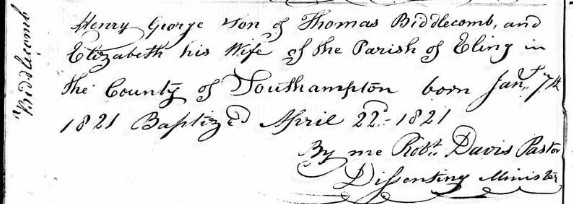 Biddlecomb
Henry George son of Thomas Biddlecomb, and
Elizabeth his Wife of the Parish of Eling in
the County of Southampton born Jany. 7th
1821 Baptized April 22d. 1821
By me Robt. Davis Pastor
Dissenting Minister